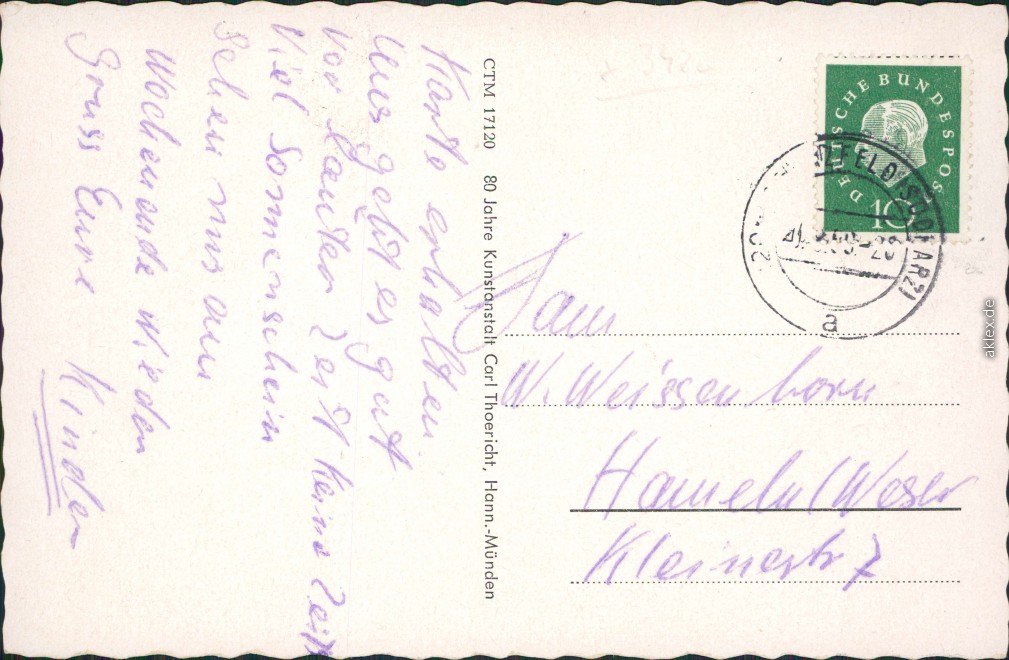 Karte erhalten
Uns geht es gut
vor lauter Zeit keine Zeit
Viel Sonnenschein
Sehen uns am
Wochenende wieder
Gruss Eure Kinder
CTM 17120 80 Jahre Kunstanstalt Carl Thoericht, Hann.-Münden
DEUTSCHE BUNDESPOST
10
ZFELD (SÜDHARZ)
a
Fam
W. Weissenborn
Hameln/Weser
Kleinestr 7
aklex.de